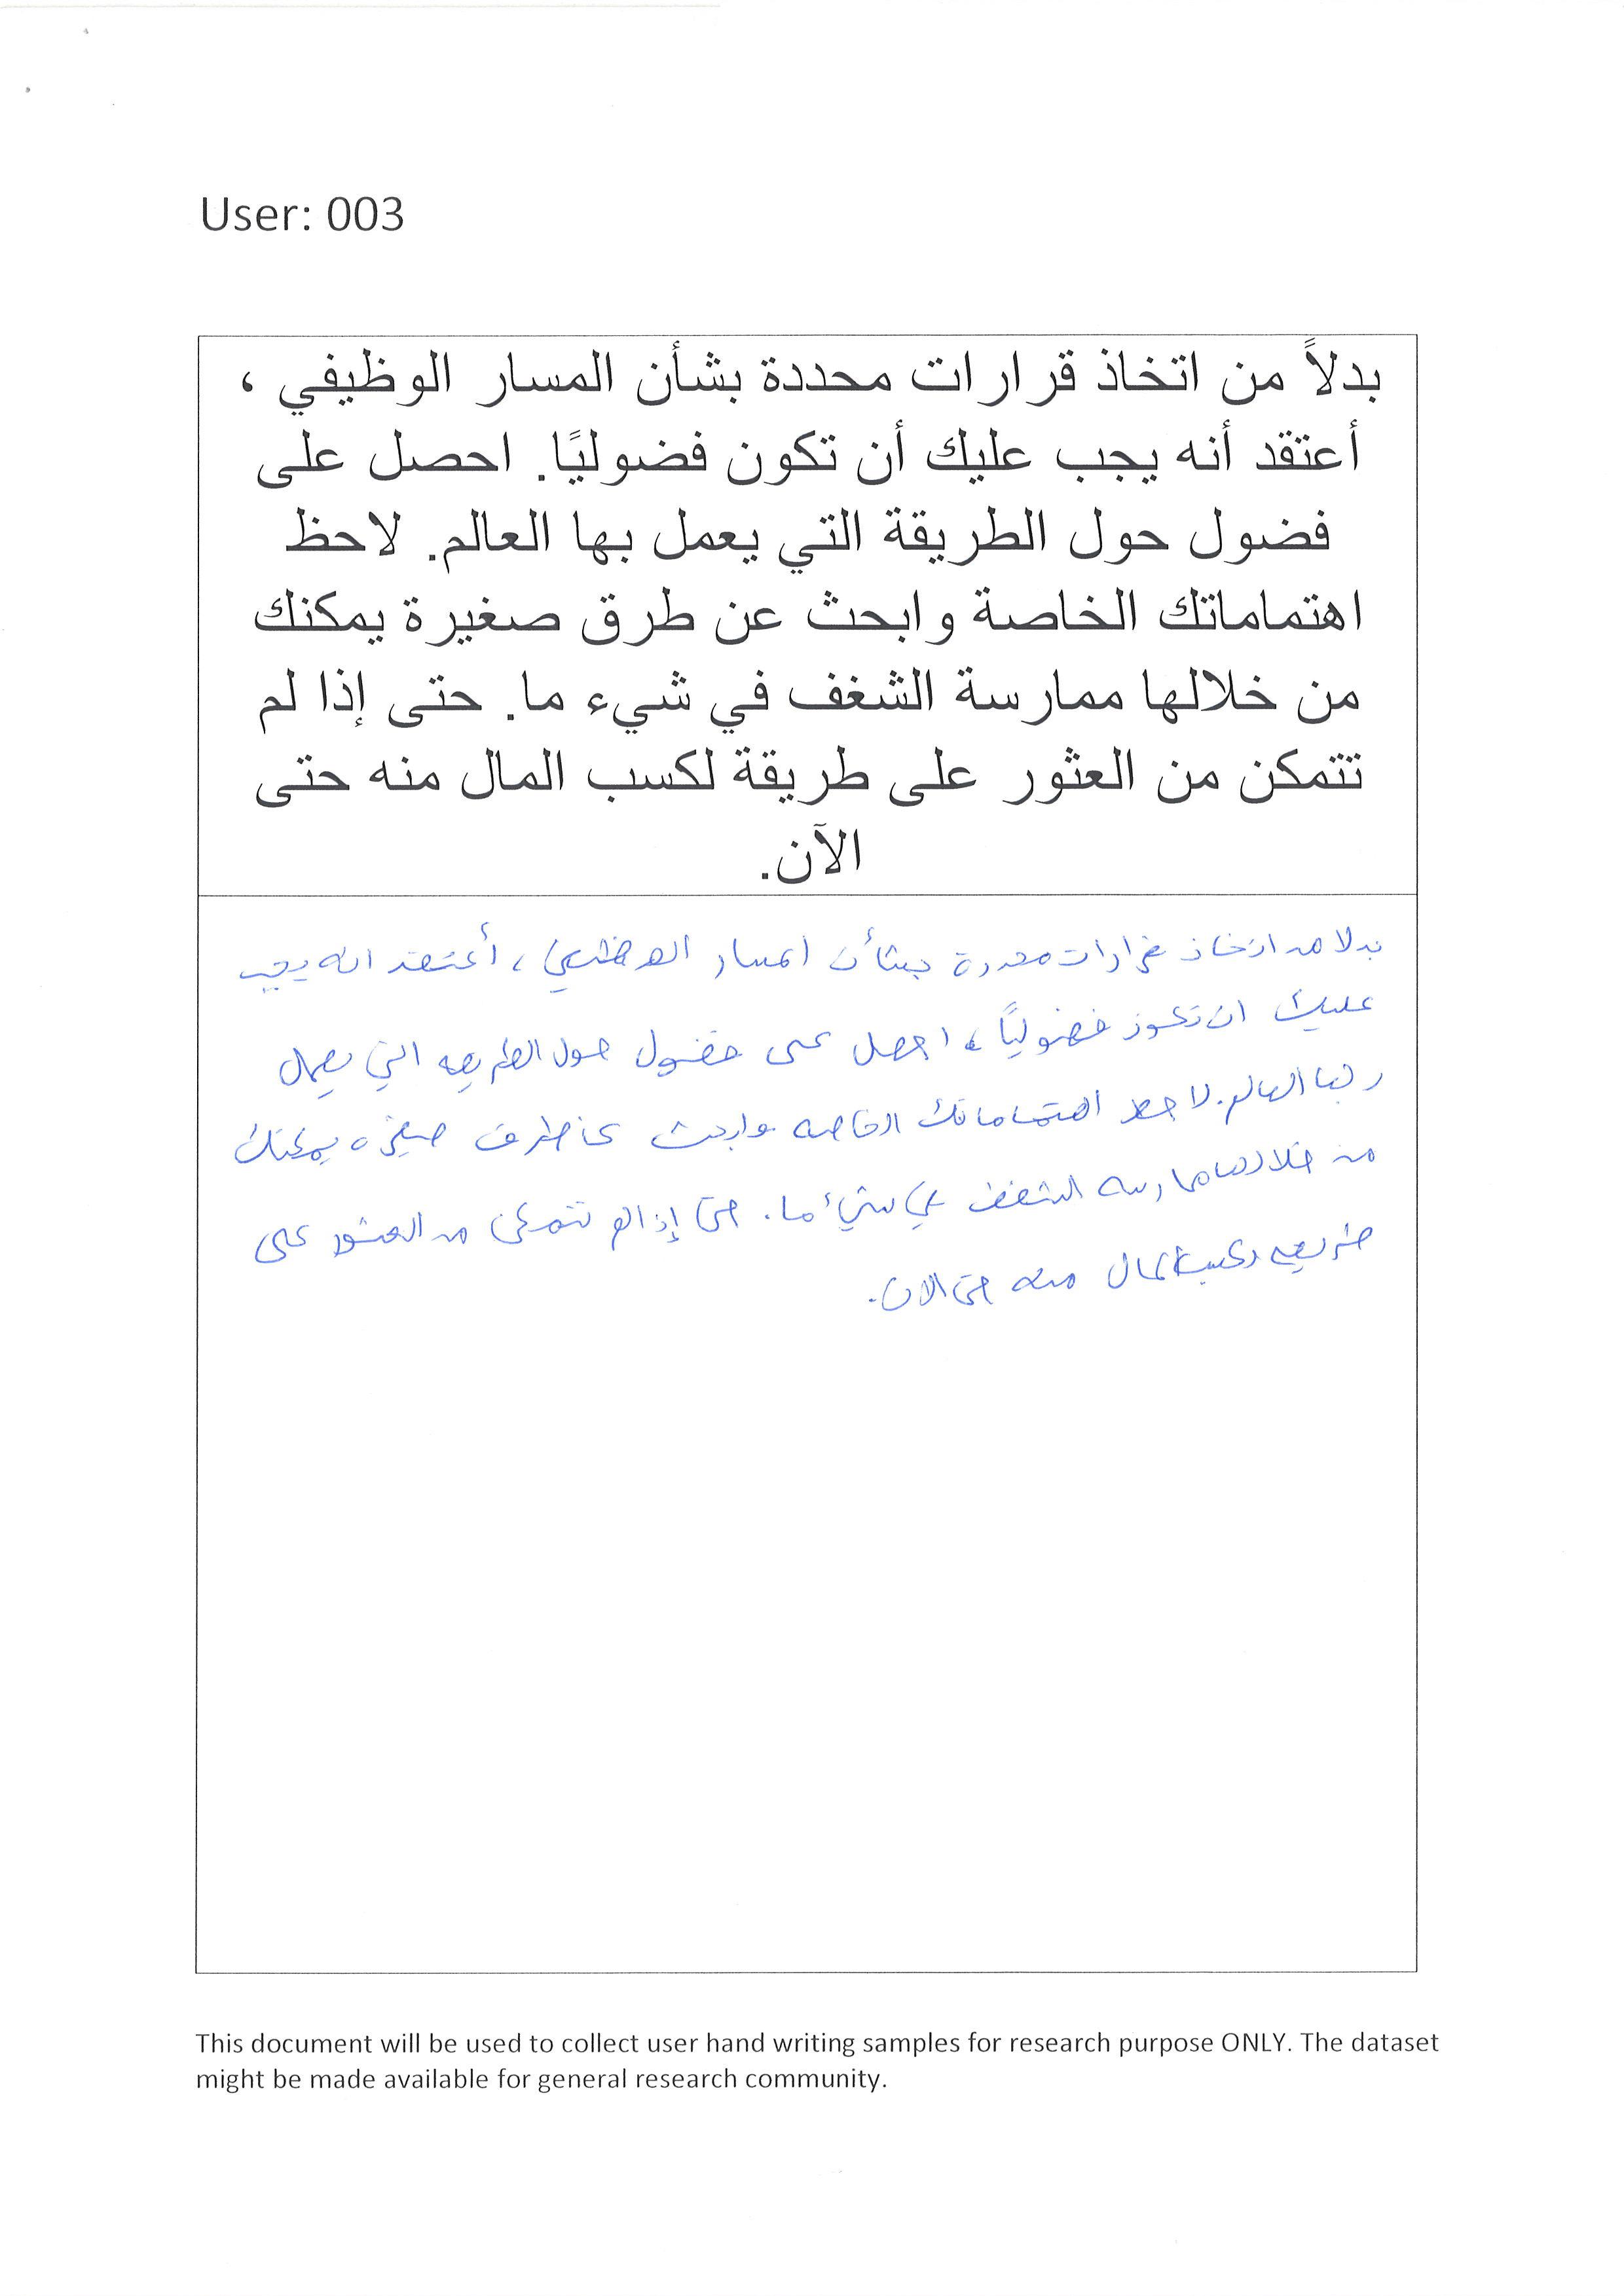 User: 003
بدلاً من اتخاذ قرارات محددة بشأن المسار الوظيفي ،
أعتقد أنه يجب عليك أن تكون فضوليًا. احصل على
فضول حول الطريقة التي يعمل بها العالم. لاحظ
اهتماماتك الخاصة وابحث عن طرق صغيرة يمكنك
من خلالها ممارسة الشغف في شيء ما. حتى إذا لم
تتمكن من العثور على طريقة لكسب المال منه حتى
الآن.
بدلا من اتخاذ قرارات محددة بشأن المسار الوظيفي ، أعتقد انه يجب
عليك ان تكون فضوليًا، احصل على فضول حول الطريقه التي يعمل
بها العالم. لاحظ اهتماماتك الخاصه وابحث عن طرق صغيره يمكنك
من خلالها ممارسه الشغف في شيء ما. حتى إذا لم تتمكن من العثور على
طريقه لكسب المال منه حتى الان.
This document will be used to collect user hand writing samples for research purpose ONLY. The dataset
might be made available for general research community.